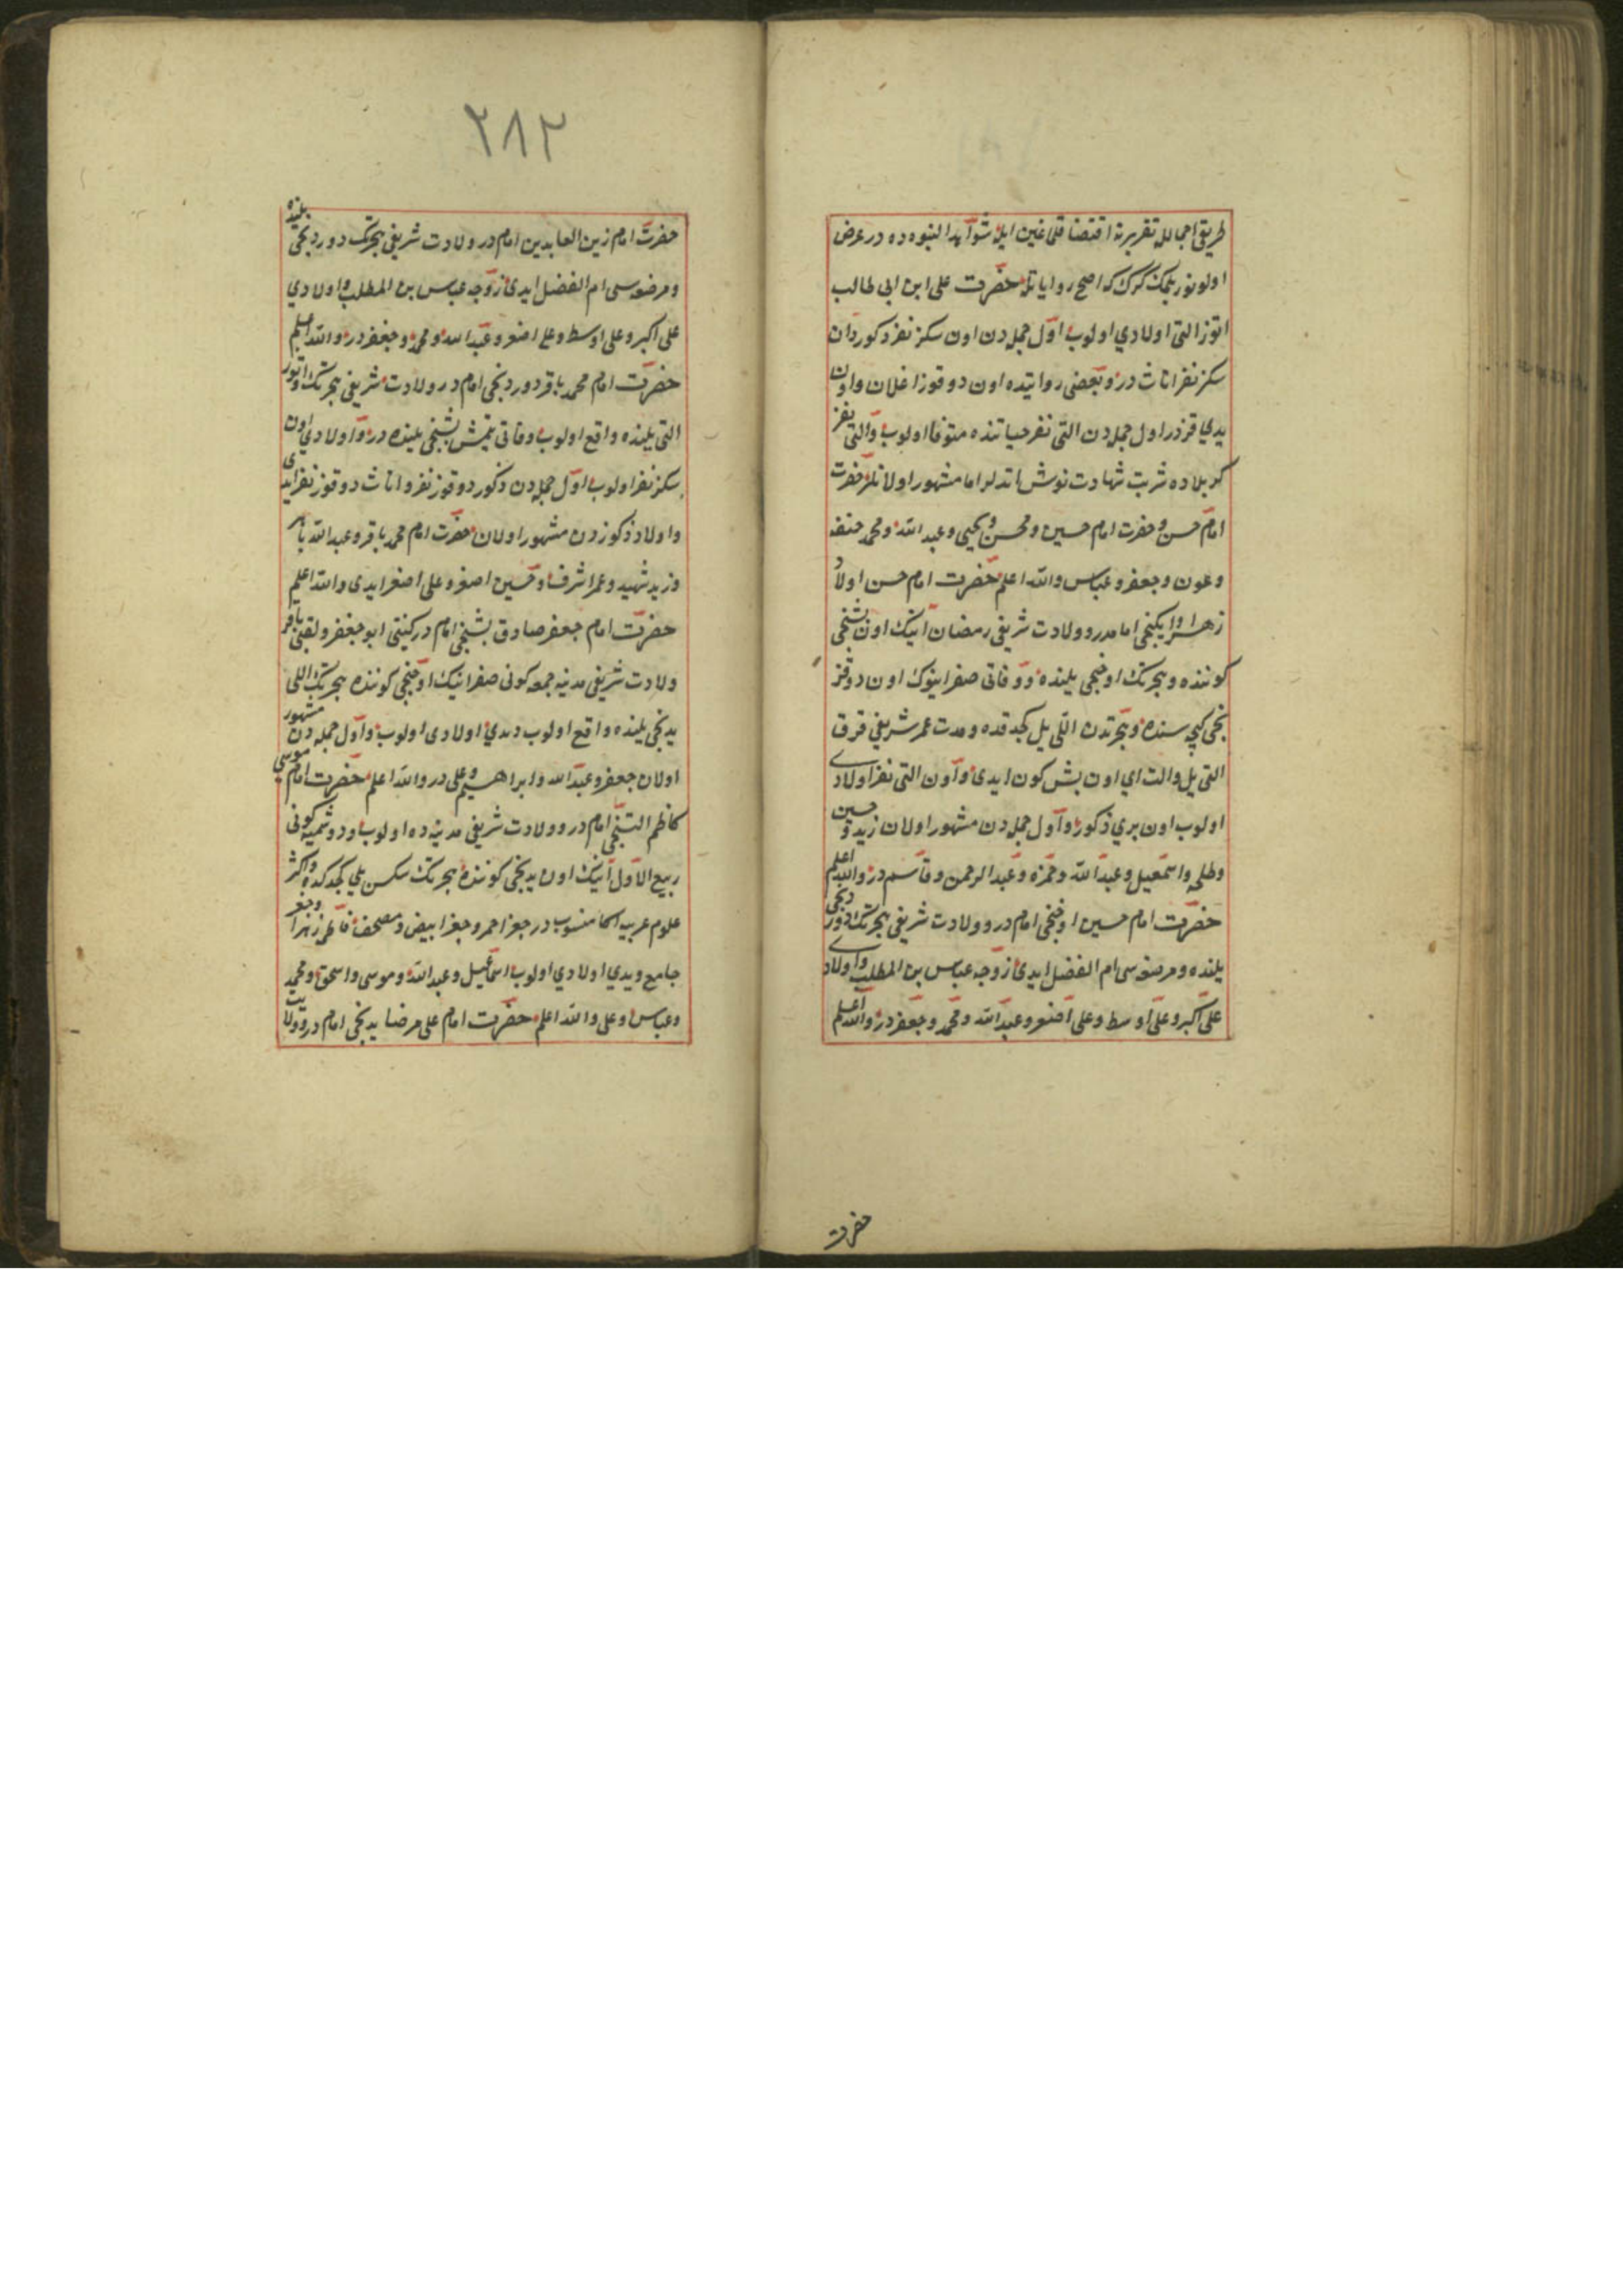 طريق اجمالله تقريرنه اقتضا قلدغين ايله شواهد النبوه ده در عرض
اولونور بلمك كرك كه اصح رواياتله حضرت على ابن ابى طالب
اتوز التى اولادي اولوب اول جمله دن اون سكز نفر ذكور دان
سكز نفر اناث در وبعضى روايتده اون دوقوز اغلان واون
يدي قزدر اول جمله دن التى نفر حياتنده متوفا اولوب والتى نفر
كربلاده شربت شهادت نوش اتديلر اما مشهور اولانلر حضرت
امام حسن وحضرت امام حسين ومحسن ويحيى وعبد الله ومحمد حنفه
وعون وجعفر وعباس والله اعلم حضرت امام حسن اولاد
زهرا وايكنجى امامدر وولادت شريفى رمضان اينك اون بشنجى
كوننده وهجرتك اوچنجى يلنده ووفاتى صفر اينوك اون دوقز
نجى كيجه سنده وهجرتدن اللى يل كجدقده ومدت عمر شريفى قرق
التى يل والت اي اون بش كون ايدى واون التى نفر اولادى
اولوب اون بري ذكور واول جمله دن مشهور اولان زيد وحسين
وطلحه واسمعيل وعبد الله وحمزه وعبد الرحمن وقاسم در والله اعلم
حضرت امام حسين اوچنجى امام در وولادت شريفى هجرتك دوردنجى
يلنده ومرضعه سى ام الفضل ايدى زوجه عباس بن المطلب واولادى
على اكبر وعلى اوسط وعلى اصغر وعبد الله ومحمد وجعفر در والله اعلم
حضرت
٢٨٢
حضرت امام زين العابدين امام در ولادت شريفى هجرتك دوردنجى يلنده
ومرضعه سى ام الفضل ايدى زوجه عباس بن المطلب واولادي
على اكبر وعلى اوسط وعلى اصغر وعبد الله ومحمد وجعفر در والله اعلم
حضرت امام محمد باقر دوردنجى امام در ولادت شريفى هجرتك اوتوز
التى يلنده واقع اولوب وفاتى يتمش بشنجى يلنده در واولادي اون
سكز نفر اولوب اول جمله دن ذكور دوقوز نفر واناث دوقوز نفر ايدى
واولاد ذكوردن مشهور اولان حضرت امام محمد باقر وعبد الله باهر
وزيد شهيد وعمر اشرف وحسين اصغر وعلى اصغر ايدى والله اعلم
حضرت امام جعفر صادق بشنجى امام در كنيتى ابو جعفر ولقبى باقر
ولادت شريفى مدينه جمعه كونى صفر اينك اوچنجى كوننده هجرتك اللى
يدنجى يلنده واقع اولوب ويدي اولادى اولوب واول جمله دن مشهور
اولان جعفر وعبد الله وابراهيم وعلى در والله اعلم حضرت امام موسى
كاظم التنجى امام در وولادت شريفى مدينه ده اولوب ودوشنبه كونى
ربيع الاول اينك اون يدنجى كوننده هجرتك سكسن يلي كجدكده واكثر
علوم عربيه اكا منسوب در جفر احمر وجفر ابيض ومصحف فاطمه زهرا وجفر
جامع ويدي اولادي اولوب اسماعيل وعبد الله وموسى واسحق ومحمد
وعباس وعلى والله اعلم حضرت امام على مرضا يدنجى امام در وولادت